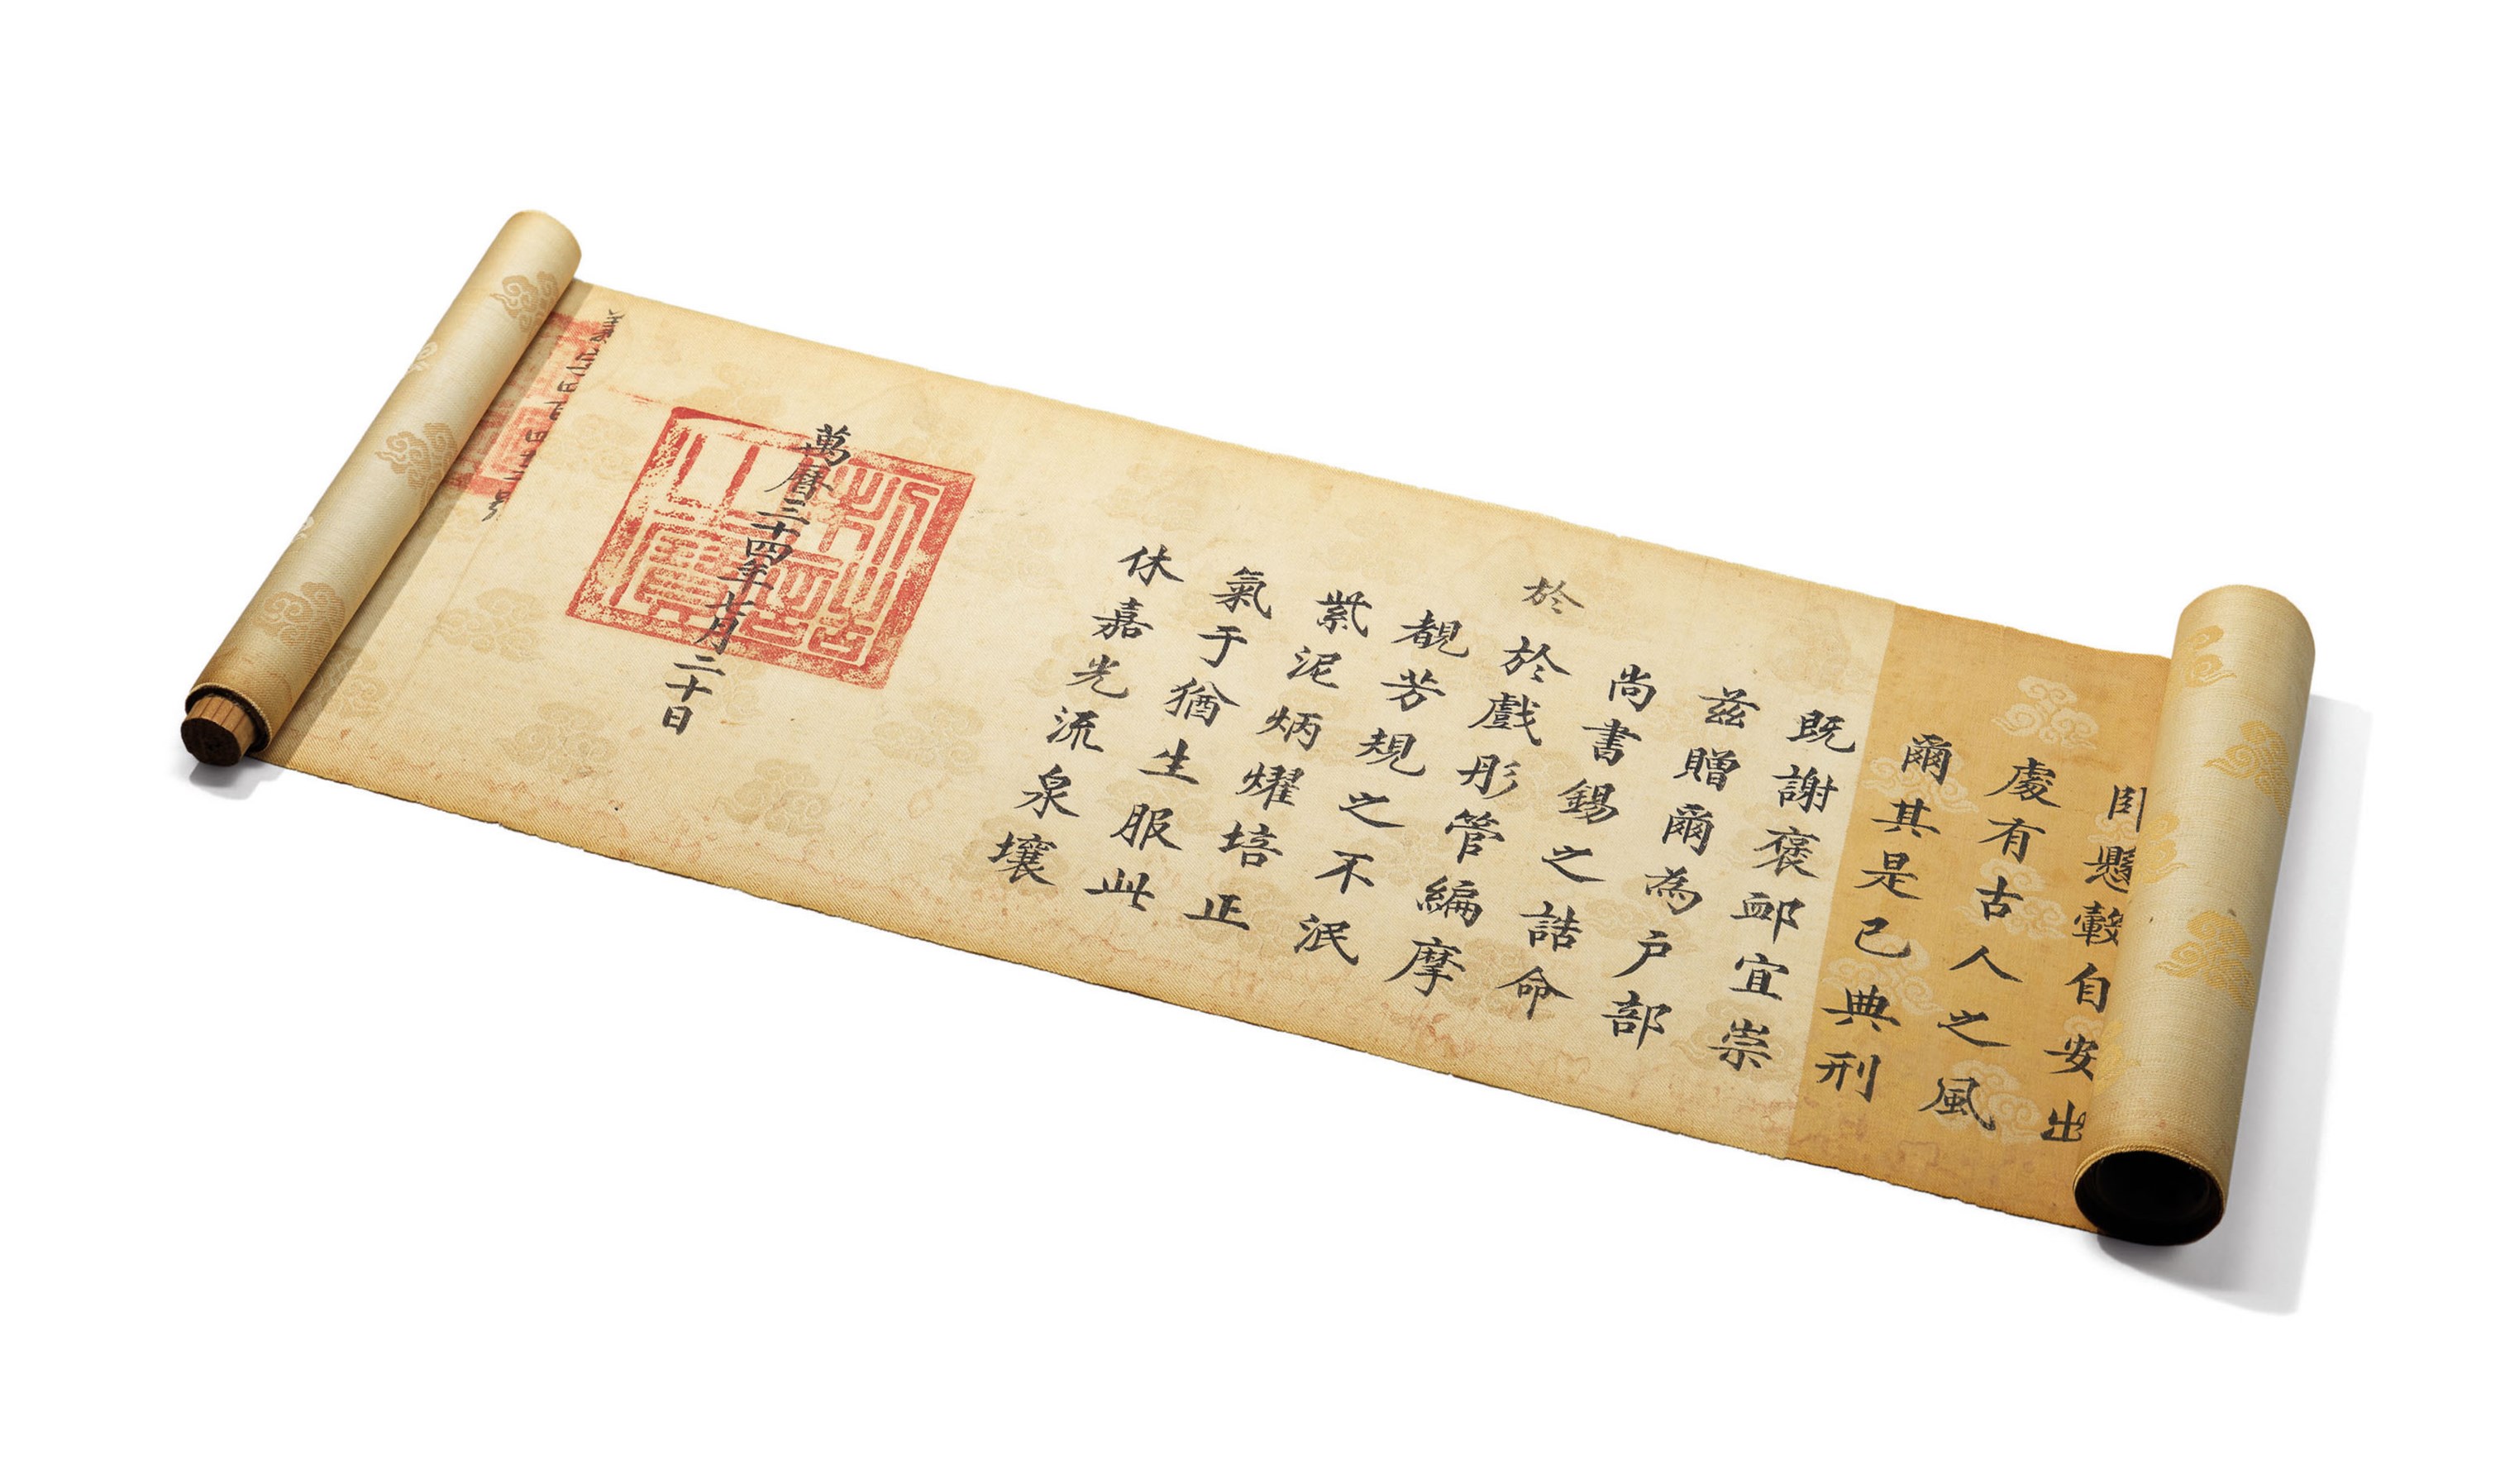 懸轂自安出
處有古人之風
爾其是已典刑
既謝褒䘏宜崇
茲贈爾為户部
尚書錫之誥命
於
於戲彤管編摩
覩芳規之不泯
紫泥炳燿培正
氣于猶生服此
休嘉光流泉壤
制誥之寶
萬曆三十四年七月二十日